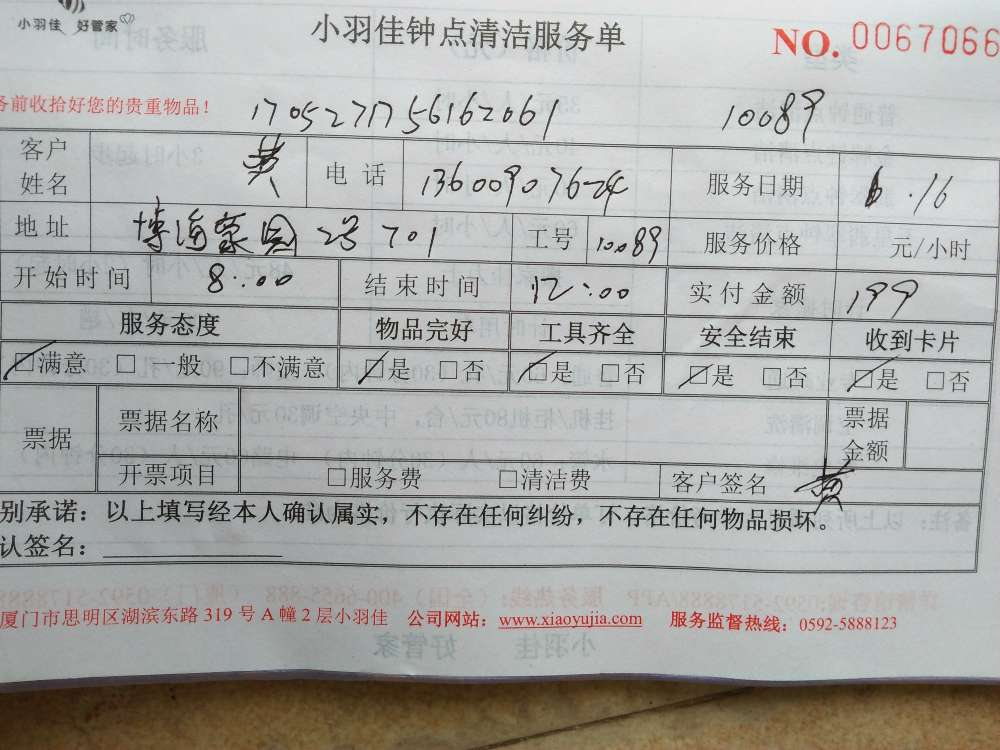 小羽佳 好管家
小羽佳钟点清洁服务单
NO. 0067066
务前收拾好您的贵重物品！
1705271756162061 10089
客户姓名 黄 电话 13600907624 服务日期 .16
地址 博海豪园 2号 701 工号 10089 服务价格 元/小时
开始时间 8:00 结束时间 12:00 实付金额 199
服务态度 物品完好 工具齐全 安全结束 收到卡片
□满意 □ 一般 □不满意 □是 □否 □是 □否 □是 □否 □是 □否
票据 票据名称 票据金额
开票项目 □服务费 □清洁费 客户签名 黄
别承诺：以上填写经本人确认属实，不存在任何纠纷，不存在任何物品损坏。
认签名：
厦门市思明区湖滨东路 319 号 A 幢 2 层小羽佳 公司网站：www.xiaoyujia.com 服务监督热线：0592-5888123
小羽佳 好管家